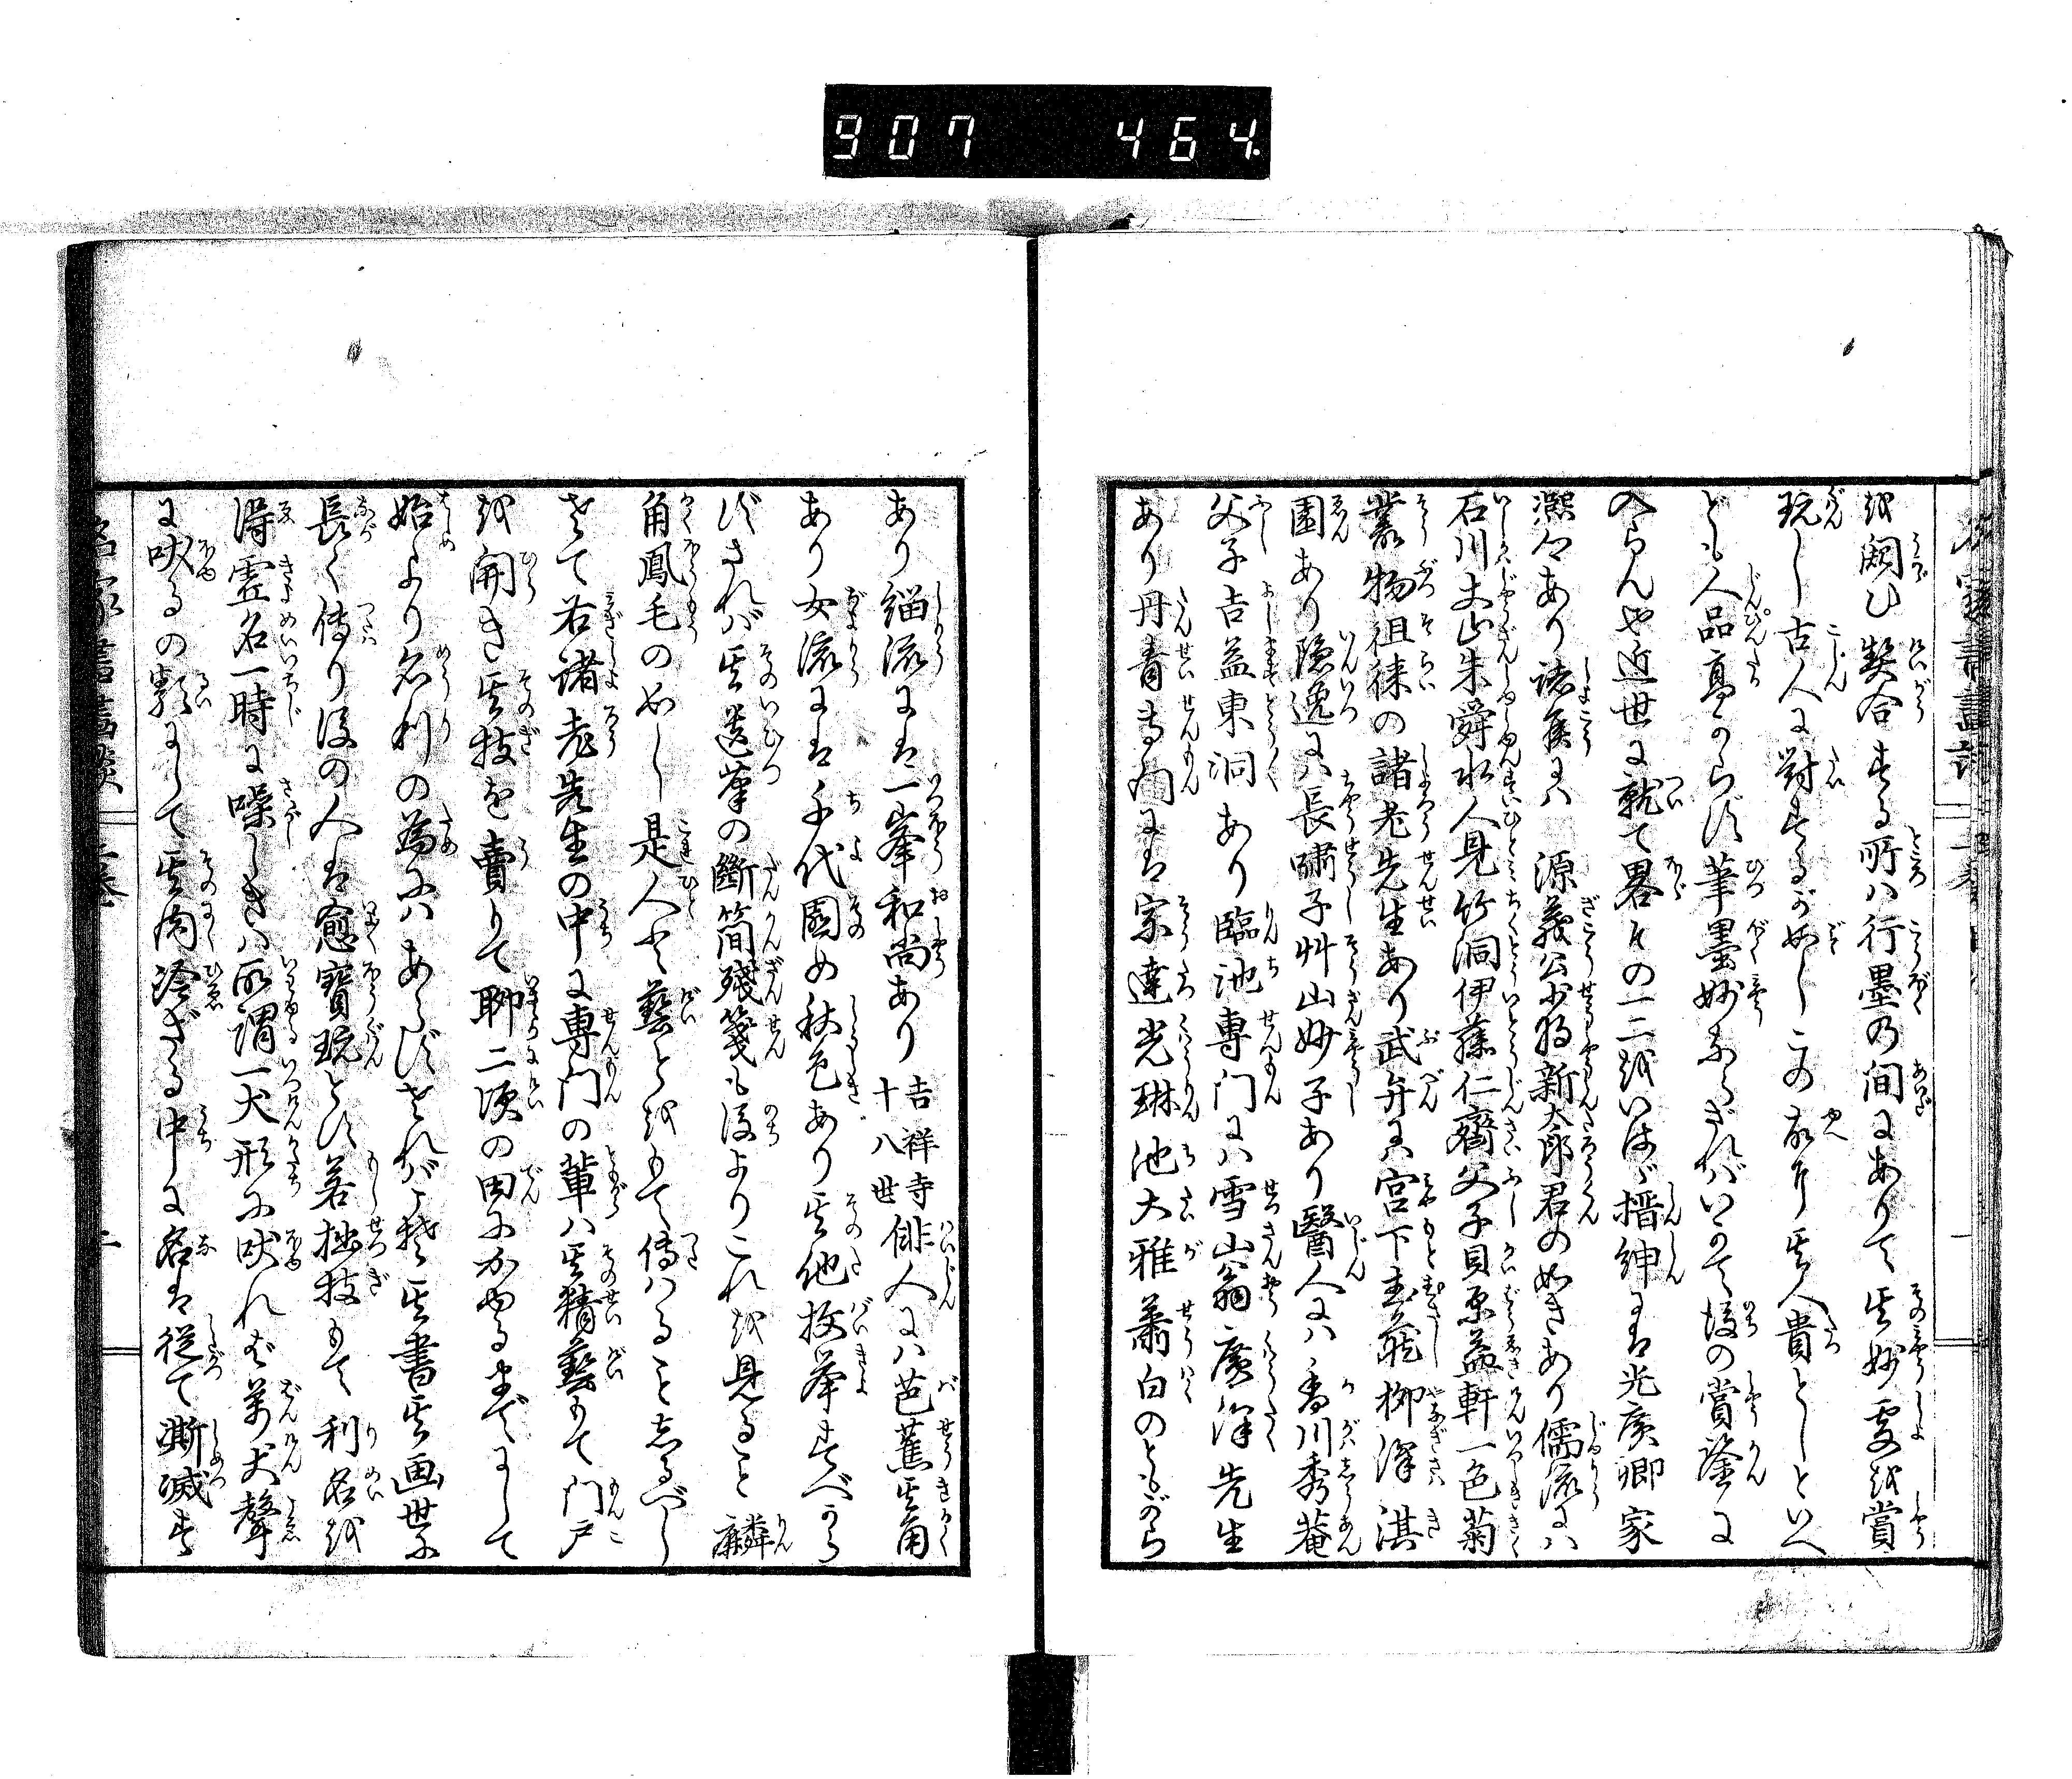 907 464
を闚ひ契合する所ハ行墨の間にありて其妙処を賞
玩し古人に対するが如しこの故に其人貴としといへ
ども人品高からず筆墨妙ならざれバいかで後の賞鑒に
入らんや近世に就て畧その一二をいはゞ搢紳には光廣卿家
凞公あり諸侯にハ源義公少将新太郎君の如きあり儒流にハ
石川丈山朱舜水人見竹洞伊藤仁齋父子貝原益軒一色菊
叢物徂徠の諸老先生あり武弁には宮下主蔵柳澤淇
園あり隠逸にハ長嘯子艸山妙子あり醫人にハ香川秀菴
父子吉益東洞あり臨池専门にハ雪山翁廣澤先生
あり丹青専门には宗達光琳池大雅蕭白のともがら
あり緇流には一峯和尚あり吉祥寺十八世俳人にハ芭蕉其角
あり女流には千代園め秋色あり其他枚挙すべから
ずされバ其遺筆の斷簡殘箋も後よりこれを見ること麟
角鳳毛の如し是人と藝とをもて傳はること志るべし
さて右諸老先生の中に専门の輩ハ其精藝もて门戸
を開き其技を賣りて聊二頃の田にかゆるまでにして
始より名利の為にハあらずされバこそ其書其画世に
長く傳り後の人は愈寳玩とす若拙技もて利名を
得虚名一時に噪しきハ所謂一犬形に吠れば萬犬聲
に吠るの類にして其肉冷ざる中に名は従て澌滅す
名家書畫談 二巻 二